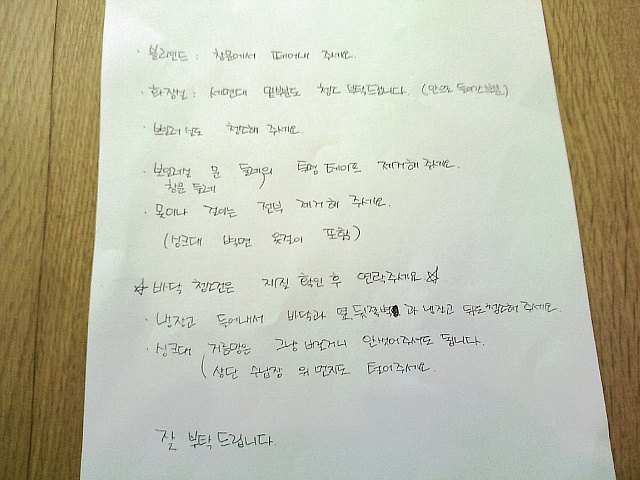 · 블라인드 : 창문에서 떼어내 주세요.
· 화장실 : 세면대 밑부분도 청소 부탁드립니다. (안으로 들어간 부분)
· 보일러실도 청소해 주세요.
· 보일러실 문 둘레의 투명 테이프 제거해 주세요.
창문 둘레
· 못이나 걸이는 전부 제거해 주세요.
(싱크대 벽면 옷걸이 포함)
☆ 바닥 청소은 재질 확인 후 연락주세요 ☆
· 냉장고 들어내서 바닥과 옆, 뒤쪽벽과 냉장고 뒤도 청소해 주세요.
· 싱크대 거름망은 그냥 버리거나 안씻어주셔도 됩니다.
(상단 수납장 위 먼지도 털어주세요.
잘 부탁드립니다.